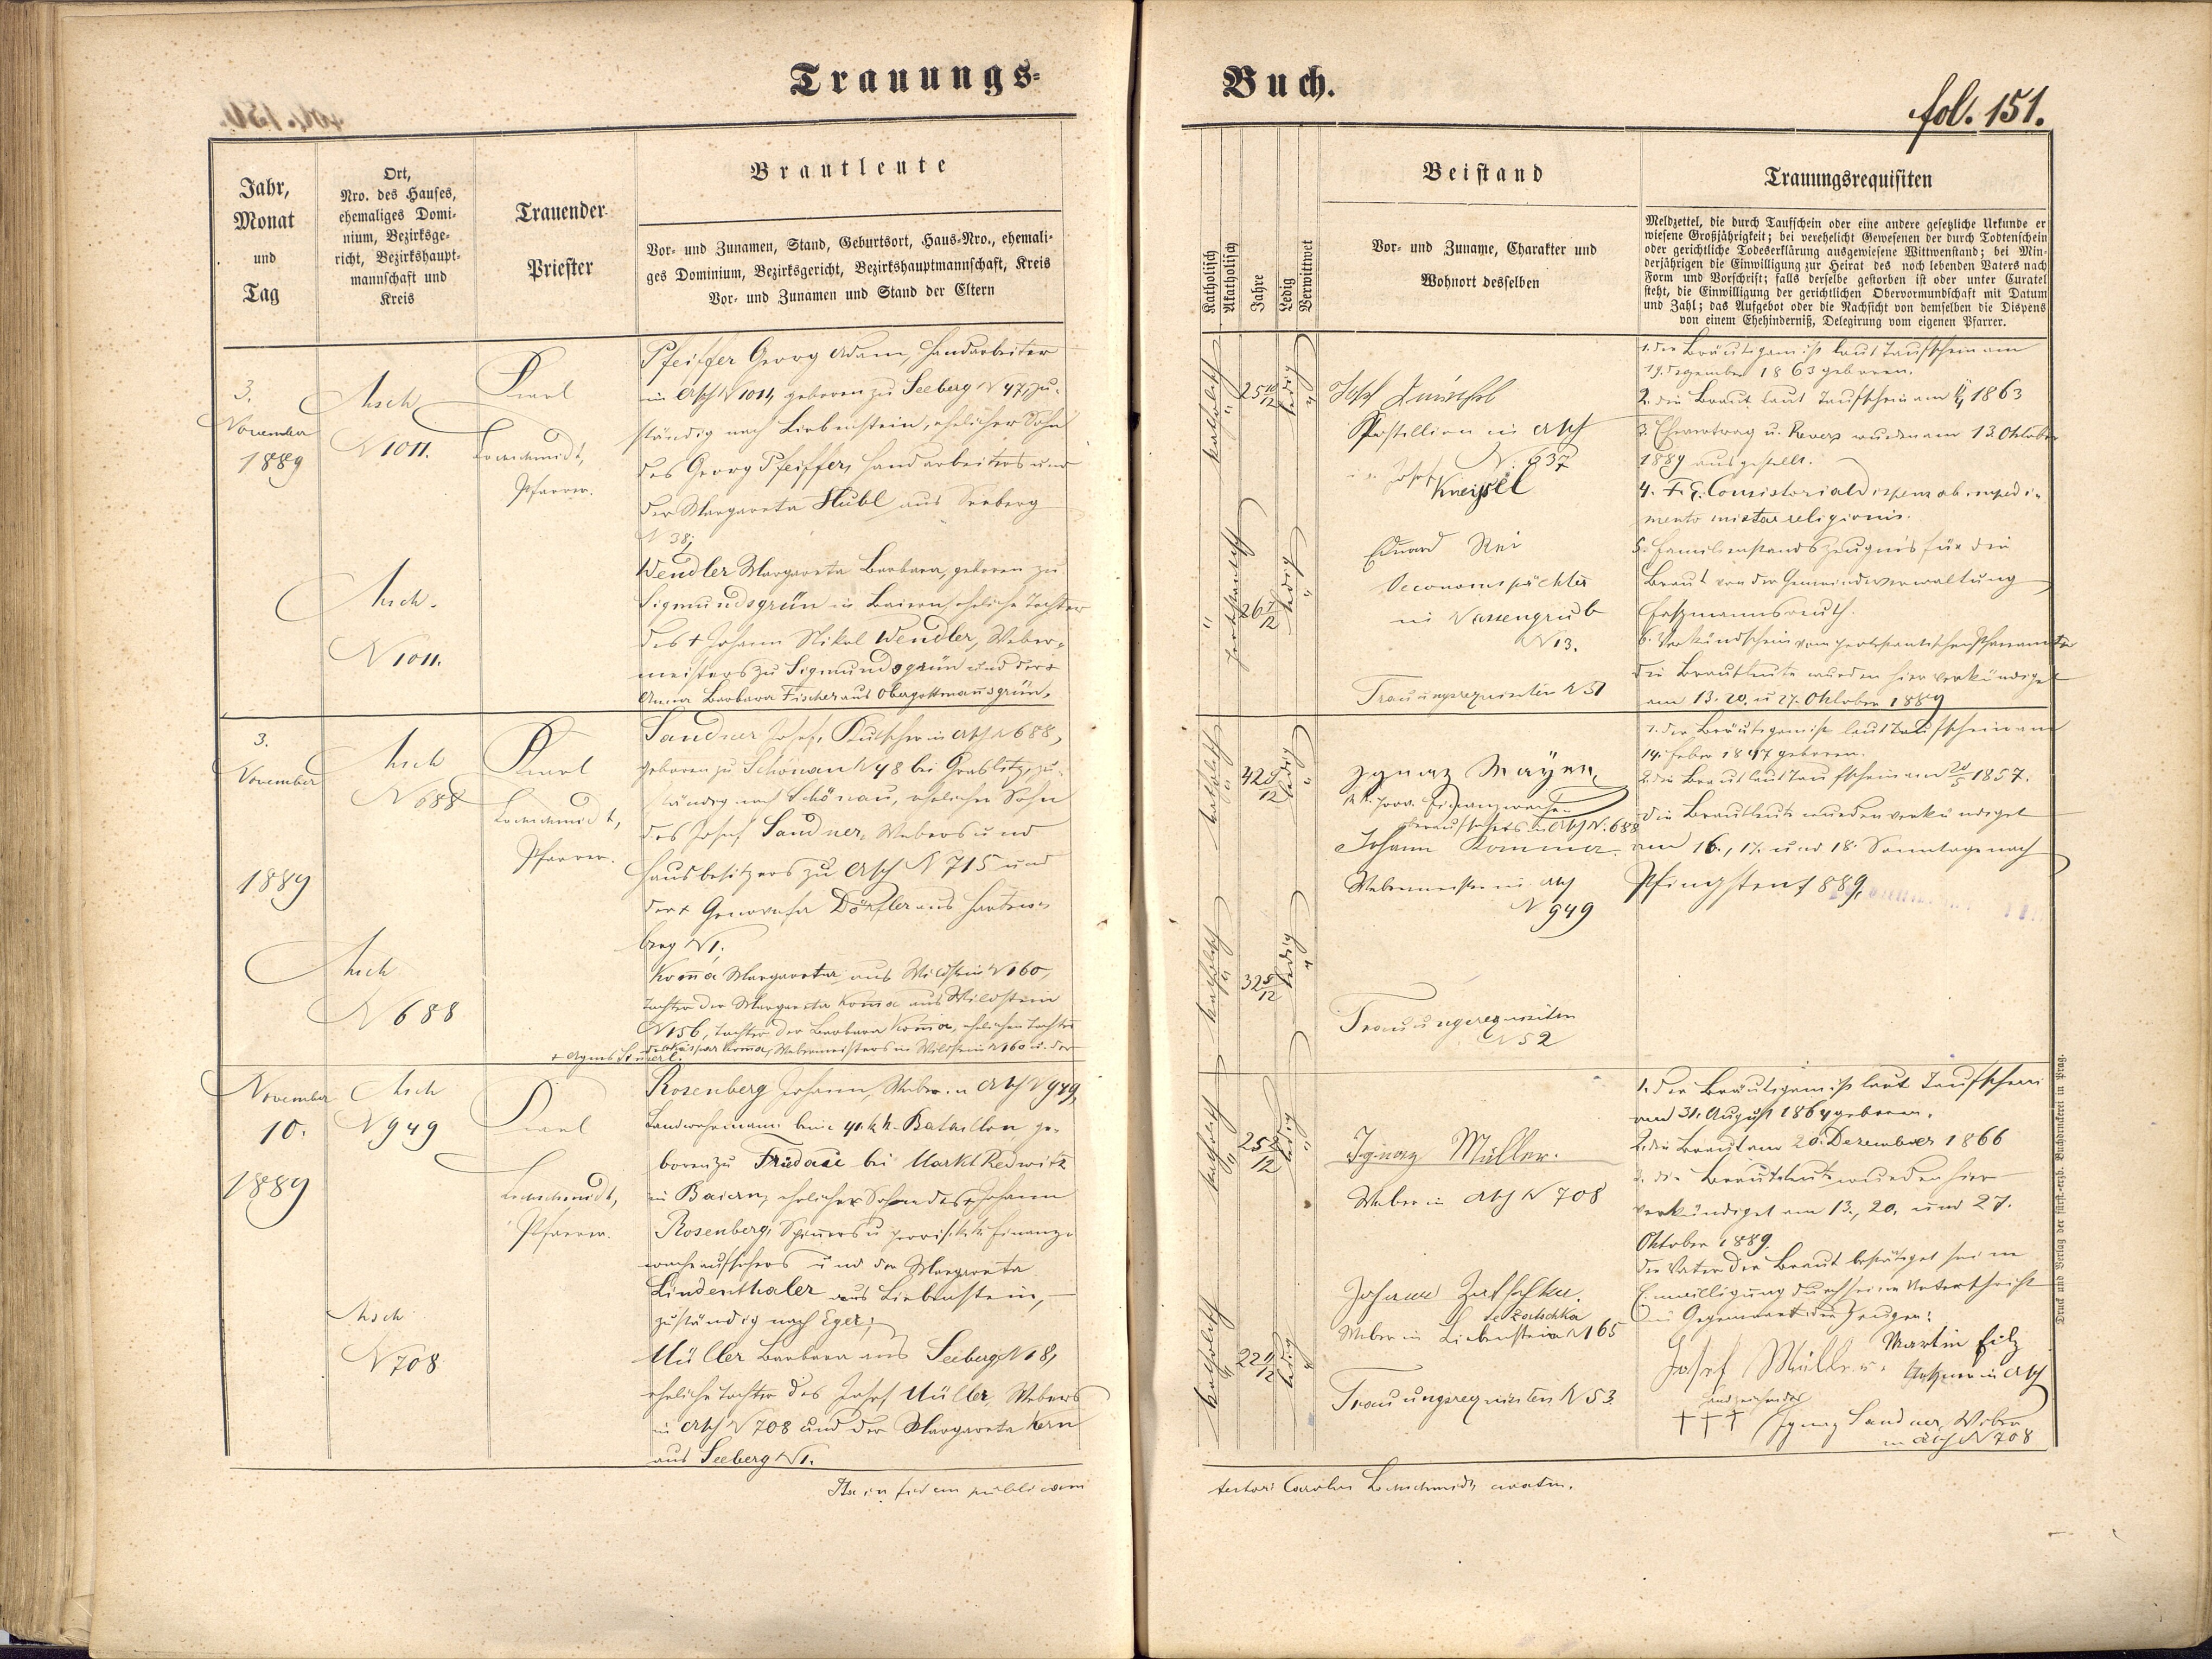 Trauungs-
Buch.
fol. 151.
Jahr,
Monat
und
Tag
Ort,
Nro. des Hauses,
ehemaliges Domi-
nium, Bezirksge-
richt, Bezirkshaupt-
mannschaft und
Kreis
Trauender
Priester
Brautleute
Vor- und Zunamen, Stand, Geburtsort, Haus-Nro., ehemali-
ges Dominium, Bezirksgericht, Bezirkshauptmannschaft, Kreis
Vor- und Zunamen und Stand der Eltern
Katholisch
Akatholisch
Jahre
Ledig
Verwittwet
Beistand
Vor- und Zuname, Charakter und
Wohnort desselben
Trauungsrequisiten
Meldzettel, die durch Taufschein oder eine andere gesetzliche Urkunde er
wiesene Großjährigkeit; bei verehelicht Gewesenen der durch Todtenschein
oder gerichtliche Todeserklärung ausgewiesene Wittwenstand; bei Min-
derjährigen die Einwilligung zur Heirat des noch lebenden Vaters nach
Form und Vorschrift; falls derselbe gestorben ist oder unter Curatel
steht, die Einwilligung der gerichtlichen Obervormundschaft mit Datum
und Zahl; das Aufgebot oder die Nachsicht von demselben die Dispens
von einem Ehehinderniß, Delegirung vom eigenen Pfarrer.
3.
November
1889
Asch
N 1011.
Karl
Pfarrer.
Pfeiffer Georg Adam, Handarbeiter
in Asch N 1011, geboren zu Seeberg N 47, zu-
ständig nach Liebenstein, ehelicher Sohn
des Georg Pfeiffer, Handarbeiters und
der Margareta Hübl aus Seeberg
N 38;
Asch.
N 1011.
Wendler Margareta Barbara, geboren zu
Sigmundsgrün in Baiern, eheliche Tochter
des + Johann Nikol Wendler, Weber-
meisters zu Sigmundsgrün und der +
Anna Barbara Fischer aus Obergottmannsgrün.
katholisch
25 10/12
ledig
protestantisch
26 /12
ledig
Josef
Postillion in Asch
N. 637
Josef
Kneissl
Eduard
Oeconomiepächter
in Nassengrub
N 13.
Trauungsrequisiten N 51
1. Der Bräutigam ist laut Taufschein am
19. Dezember 1863 geboren.
2. die Braut laut Taufschein am 1863
3. Ehevertrag u. Revers wurden am 13. Oktober
1889 ausgestellt.
4. F. E. Consistorialdispens ab impedi-
mento mixtae religionis.
5. Familienstandszeugnis für die
Braut von der Gemeindeverwaltung
6. Verkündschein vom protestantischen Pfarramte
Die Brautleute wurden hier verkündiget
am 13. 20. u 27. Oktober 1889
3.
November
1889
Asch
N 688
Karl
Pfarrer.
Sandner Josef, Kutscher in Asch N 688,
geboren zu Schönau N 48 bei Graslitz, zu-
ständig nach Schönau, ehelicher Sohn
des Josef Sandner, Webers und
Hausbesitzers zu Asch N 715 und
der + Genovefa Dörfler aus Harten-
berg N 1.
Asch
N 688
Koma Margareta aus Wildstein N 160,
Tochter der Margareta Koma aus Wildstein
N 156, Tochter der Barbara Koma, ehelichen Tochter
des Kaspar Koma, Webermeisters in Wildstein N 160 u. der
+ Agnes
katholisch
42 /12
ledig
katholisch
32 5/12
ledig
Ignaz Mayer,
k. k. prov. Finanzwach-
oberaufsehers in Asch N. 688
Johann Kommer
Webermeister in Asch
N 949
Trauungsrequisiten
N 52
1. Der Bräutigam ist laut Taufschein am
14. Feber 1847 geboren.
2. die Braut laut Taufschein am 20/5 1857.
Die Brautleute wurden verkündiget
am 16., 17. und 18. Sonntage nach
Pfingsten 1889,
November
10.
1889
Asch
N 949
Karl
Pfarrer.
Rosenberg Johann, Weber in Asch N 949,
Landwehrmann beim 41. k. k. Bataillon, ge-
boren zu bei Markt Redwitz
in Baiern, ehelicher Sohn des + Johann
Rosenberg, Spinners u provis. k. k. Finanz-
wachaufsehers und der Margareta
Lindenthaler aus Liebenstein,
zuständig nach Eger;
Asch
N 708
Müller Barbara aus Seeberg N 18,
eheliche Tochter des Josef Müller, Webers
in Asch N 708 und der Margareta Kern
aus Seeberg N 1.
katholisch
25 /12
ledig
katholisch
22 11/12
ledig
Ignaz Müller.
Weber in Asch N 708
Johann Zatschka.
Zatschka
Weber in Liebenstein N 165
Trauungsrequisiten N 53.
1. Der Bräutigam ist laut Taufschein
am 31. August 1864 geboren.
2. die Braut am 20. Dezember 1866
3. die Brautleute wurden hier
verkündiget am 13., 20. und 27.
Oktober 1889.
Der Vater der Braut bestätiget seine
Einwilligung durch seine Unterschrift
in Gegenwart der Zeugen:
Josef Müller
Martin
in Asch
Handzeichen des
+++
Ignaz Sandner, Weber
in Asch N 708
Ita in fidem publicam
testor: Carolus
Druck und Verlag der fürst.-erzb. Buchdruckerei in Prag.